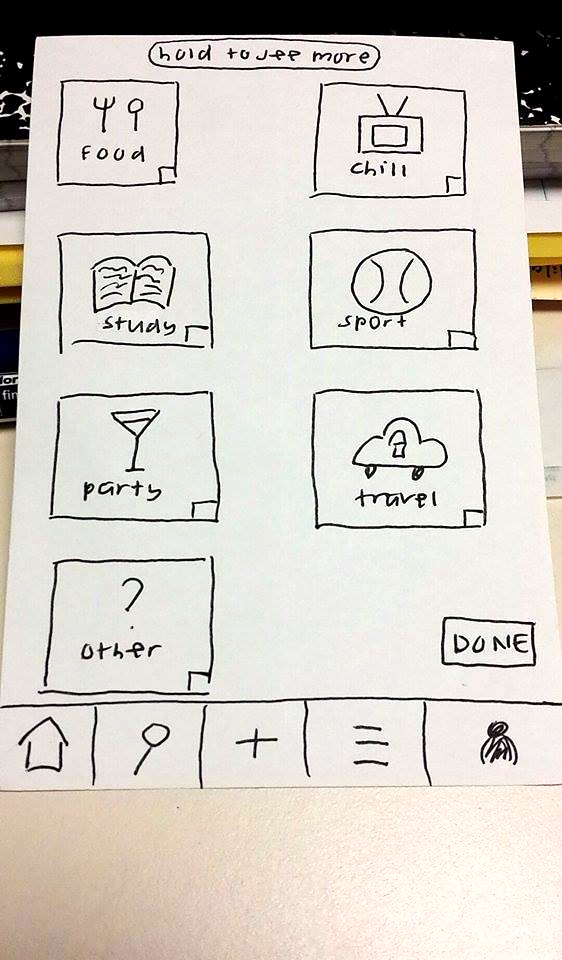 hold to see more
Food
chill
study
sport
party
travel
?
other
DONE
+